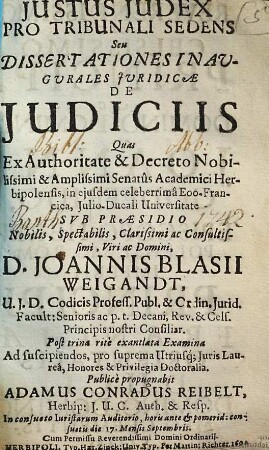 JUSTUS JUDEX
PRO TRIBUNALI SEDENS
Seu
DISSERTATIONES INAU-
GURALES JURIDICÆ
DE
JUDICIIS
Quas
Ex Authoritate & Decreto Nobi-
lissimi & Amplissimi Senatûs Academici Her-
bipolensis, in ejusdem celeberrimâ Eoo-Fran-
cica, Julio-Ducali Universitate
SVB PRÆSIDIO
Nobilis, Spectabilis, Clarissimi ac Consultis-
simi, Viri ac Domini,
D. JOANNIS BLASII
WEIGANDT,
U. J. D. Codicis Profess. Publ. & Crimin. Jurid.
Facult: Senioris ac p. t. Decani, Rev. & Cels.
Principis nostri Consiliar.
Post trina ritè exantlata Examina
Ad suscipiendos, pro suprema Utriusq; Juris Lau-
reâ, Honores & Privilegia Doctoralia.
Publicè propugnabit
ADAMUS CONRADUS REIBELT,
Herbip: J. U. C. Auth. & Resp.
In consueto Juristarum Auditorio, horis ante & pomerid: con-
suetis die 17. Mensis Septembris.
Cum Permissu Reverendissimi Domini Ordinarij.
HERBIPOLI, Typ. Hær. Zinck: Univ. Typ. Per Martin: Richter.